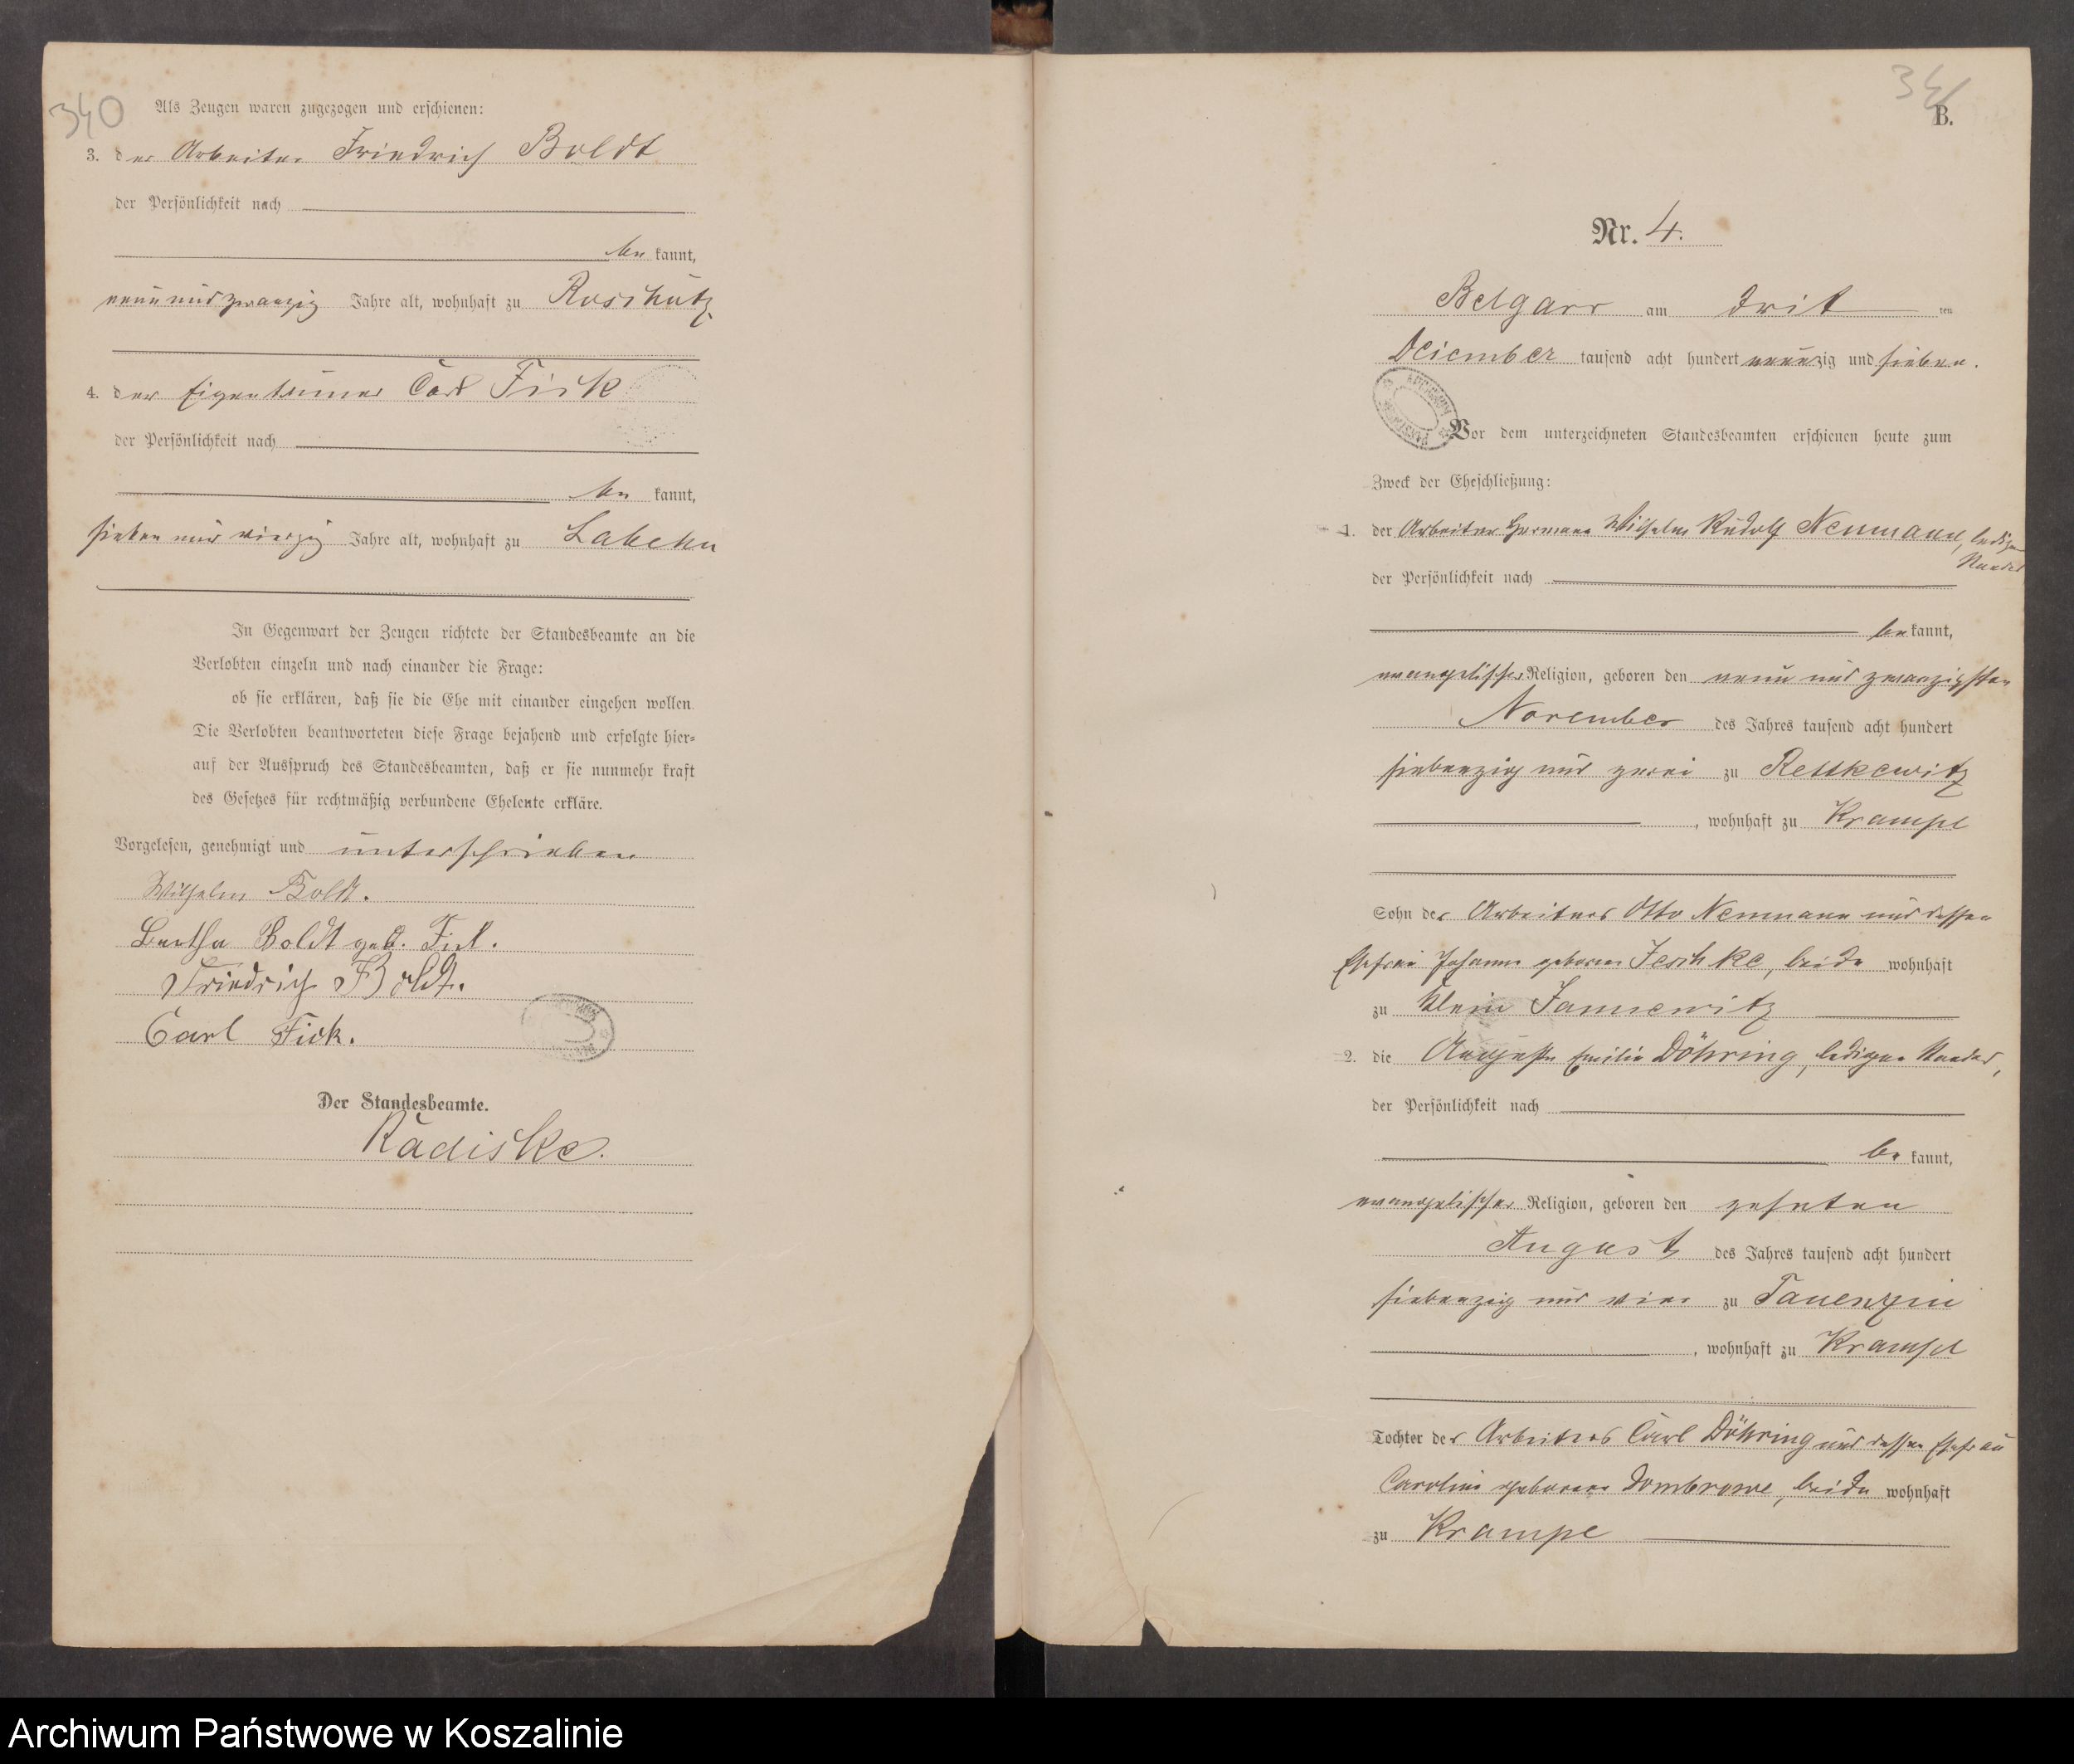 340
Als Zeugen waren zugezogen und erschienen:
3. der Arbeiter Friedrich Boldt
der Persönlichkeit nach
be kannt,
neun und zwanzig Jahre alt, wohnhaft zu Roschütz
4. der Eigentümer Carl Fick
der Persönlichkeit nach
be kannt,
sieben und vierzig Jahre alt, wohnhaft zu Labehn
In Gegenwart der Zeugen richtete der Standesbeamte an die
Verlobten einzeln und nach einander die Frage:
ob sie erklären, daß sie die Ehe mit einander eingehen wollen.
Die Verlobten beantworteten diese Frage bejahend und erfolgte hier-
auf der Ausspruch des Standesbeamten, daß er sie nunmehr kraft
des Gesetzes für rechtmäßig verbundene Eheleute erkläre.
Vorgelesen, genehmigt und unterschrieben
Wilhelm Boldt.
Bertha Boldt geb. Fick.
Friedrich Boldt.
Carl Fick.
Der Standesbeamte.
Radiske.
341
B.
Nr. 4.
Belgard am drit ten
Dezember tausend acht hundert neunzig und sieben.
Vor dem unterzeichneten Standesbeamten erschienen heute zum
Zweck der Eheschließung:
1. der Arbeiter Hermann Wilhelm Rudolf Neumann, ledigen Standes
der Persönlichkeit nach
be kannt,
evangelischer Religion, geboren den neun und zwanzigsten
November des Jahres tausend acht hundert
siebenzig und zwei zu Rettkewitz
, wohnhaft zu Krampe
Sohn des Arbeiters Otto Neumann und dessen
Ehefrau Johanne geborene Jeschke, beide wohnhaft
zu Klein Jannewitz
2. die Auguste Emilie Döhring, ledigen Standes,
der Persönlichkeit nach
be kannt,
evangelischer Religion, geboren den zehnten
August des Jahres tausend acht hundert
siebenzig und vier zu Tauenzin
, wohnhaft zu Krampe
Tochter des Arbeiters Carl Döhring und dessen Ehefrau
Caroline geborene Dombrowe, beide wohnhaft
zu Krampe
Archiwum Państwowe w Koszalinie